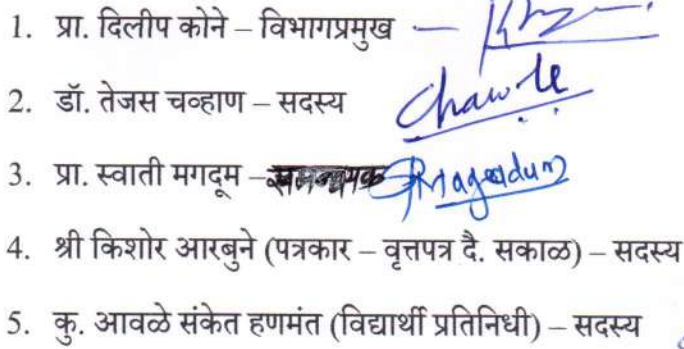 1. प्रा. दिलीप कोने – विभागप्रमुख –
2. डॉ. तेजस चव्हाण – सदस्य
3. प्रा. स्वाती मगदूम – समन्वयक SMagadum
4. श्री किशोर आरबुने (पत्रकार – वृत्तपत्र दै. सकाळ) – सदस्य
5. कु. आवळे संकेत हणमंत (विद्यार्थी प्रतिनिधी) – सदस्य